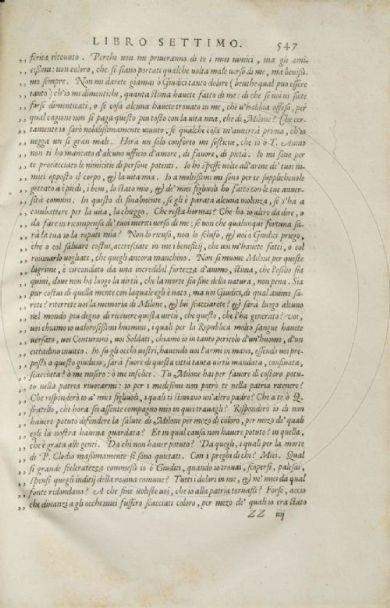 LIBRO SETTIMO. 547
„ ferita ricevuto. Perche non mi priveranno di te i miei nimici, ma gli ami-
„ cissimi: non coloro, che si siano portati qualche volta male verso di me, ma benissi-
„ mo sempre. Non mi darete giamai ò Giudici tanto dolore (benche qual può essere
„ tanto) ch'io mi dimentichi, quanta stima havete fatto di me: di che se voi vi siete
„ forse dimenticati, o se cosa alcuna havete trovato in me, che v'habbia offeso, per
„ qual cagione non si paga questo più tosto con la vita mia, che di Milone? Che cer-
„ tamente io sarò nobilissimamente vivuto, se qualche cosa m'avverrà prima, ch'io
„ vegga un si gran male. Hora un solo conforto mi sostiene, che io ò T. Annio
„ non ti ho mancato d'alcuno ufficio d'amore, di favore, di pietà. Io mi sono per
„ te procacciato le nimicitie di persone potenti. Io ho spesse volte all'arme de' tuoi ni-
„ mici opposto il corpo, & la vita mia. Io a moltissimi mi sono per te supplichevole
„ gettato a' piedi, i beni, lo stato mio, & de' miei figliuoli ho fatto con le tue avver-
„ sità comuni. In questo dì finalmente, se gli è parata alcuna violenza, se s'ha a
„ combattere per la vita, la chieggo. Che resta hormai? Che ho io altro da dire, o
„ da fare in ricompensa de' tuoi meriti verso di me: se non che qualunque fortuna sa-
„ rà la tua io la reputi mia? Non lo ricuso, non lo schifo, & voi ò Giudici prego,
„ che o col salvare costui, accresciate in me i beneficij, che voi m'havete fatti, o col
„ rovinarlo vogliate, che quegli ancora manchino. Non si muove Milone per queste
„ lagrime, è circondato da una incredibil fortezza d'animo, stima, che l'esilio sia
„ quivi, dove non ha luogo la virtù, che la morte sia fine della natura, non pena. Sia
„ pur costui di quella mente con laquale egli è nato, ma voi Giudici, di qual animo sa-
„ rete? riterrete voi la memoria di Milone, & lui scaccierete? & sarà luogo alcuno
„ nel mondo più degno di ricevere questa virtù, che questo, che l'ha generato? voi,
„ voi chiamo io valorosissimi huomini, i quali per la Republica molto sangue havete
„ versato, voi Centurioni, voi Soldati, chiamo io in tanto pericolo d'un'huomo, d'un
„ cittadino invitto. In su gli occhi vostri, havendo voi l'armi in mano, essendo voi pre-
„ posti a questo giudicio, sarà fuore di questa città tanta virtù mandata, confinata,
„ scacciata? ò me misero: ò me infelice. Tu Milone hai per favore di costoro potu-
„ to nella patria rivocarmi: io per i medesimi non potrò te nella patria ritenere?
„ Che risponderò io a' miei figliuoli, i quali ti stimano un'altro padre? Che a te ò Q.
„ fratello, che hora sei assente compagno mio in quei travagli? Risponderò io di non
„ havere potuto defendere la salute di Milone per mezo di coloro, per mezo de' quali
„ egli la nostra haveva guardata? Et in qual causa non havere potuto? in quella,
„ che è grata alle genti. Da chi non haver potuto? Da quegli, i quali per la morte
„ di P. Clodio massimamente si sono quietati. Con i preghi di che? Miei. Qual
„ si grande sceleratezza commessi io ò Giudici, quando io trovai, scopersi, palesai,
„ spensi quegli indicij della rovina comune? Tutti i dolori in me, & ne' miei da qual
„ fonte ridondano? A che fine voleste voi, che io alla patria tornassi? Forse, accio
„ che dinanzi a gli occhi miei fussero scacciati coloro, per mezo de' quali io era stato
ZZ iij